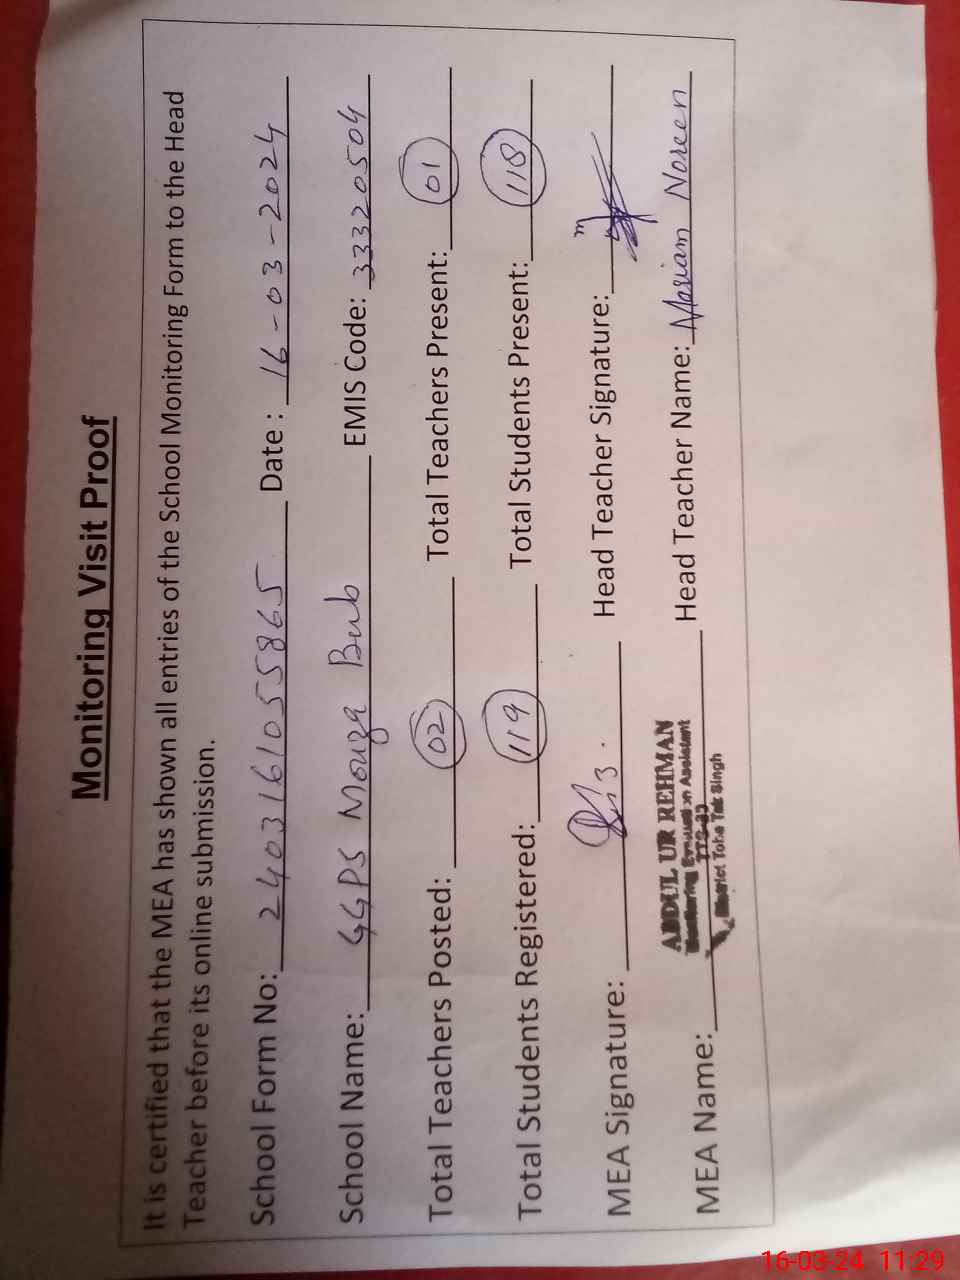 Monitoring Visit Proof
It is certified that the MEA has shown all entries of the School Monitoring Form to the Head
Teacher before its online submission.
School Form No: 2403161055865 Date : 16-03-2024
School Name: GGPS Mouza Bub EMIS Code: 33320504
Total Teachers Posted: 02 Total Teachers Present: 01
Total Students Registered: 119 Total Students Present: 118
MEA Signature: Head Teacher Signature:
MEA Name: Head Teacher Name: Mariam Noreen
ABDUL UR REHMAN
Monitoring Evaluation Assistant
District Toba Tek Singh
16-03-24 11:29